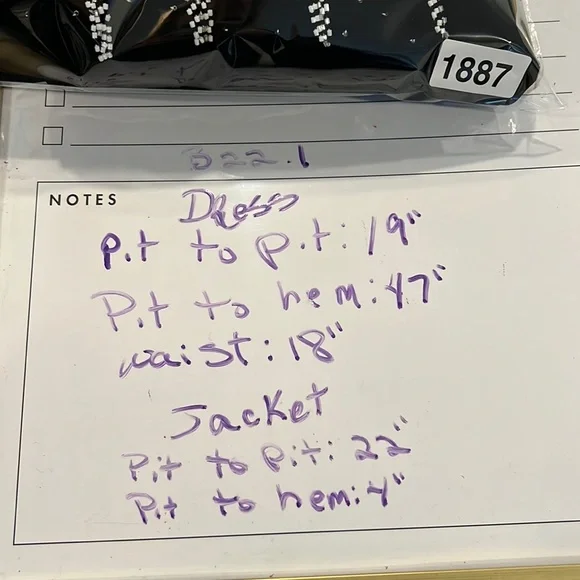 1887
B22.1
NOTES
Dress
Pit to Pit: 19"
Pit to hem: 47"
waist: 18"
Jacket
Pit to Pit: 22"
Pit to hem: 4"